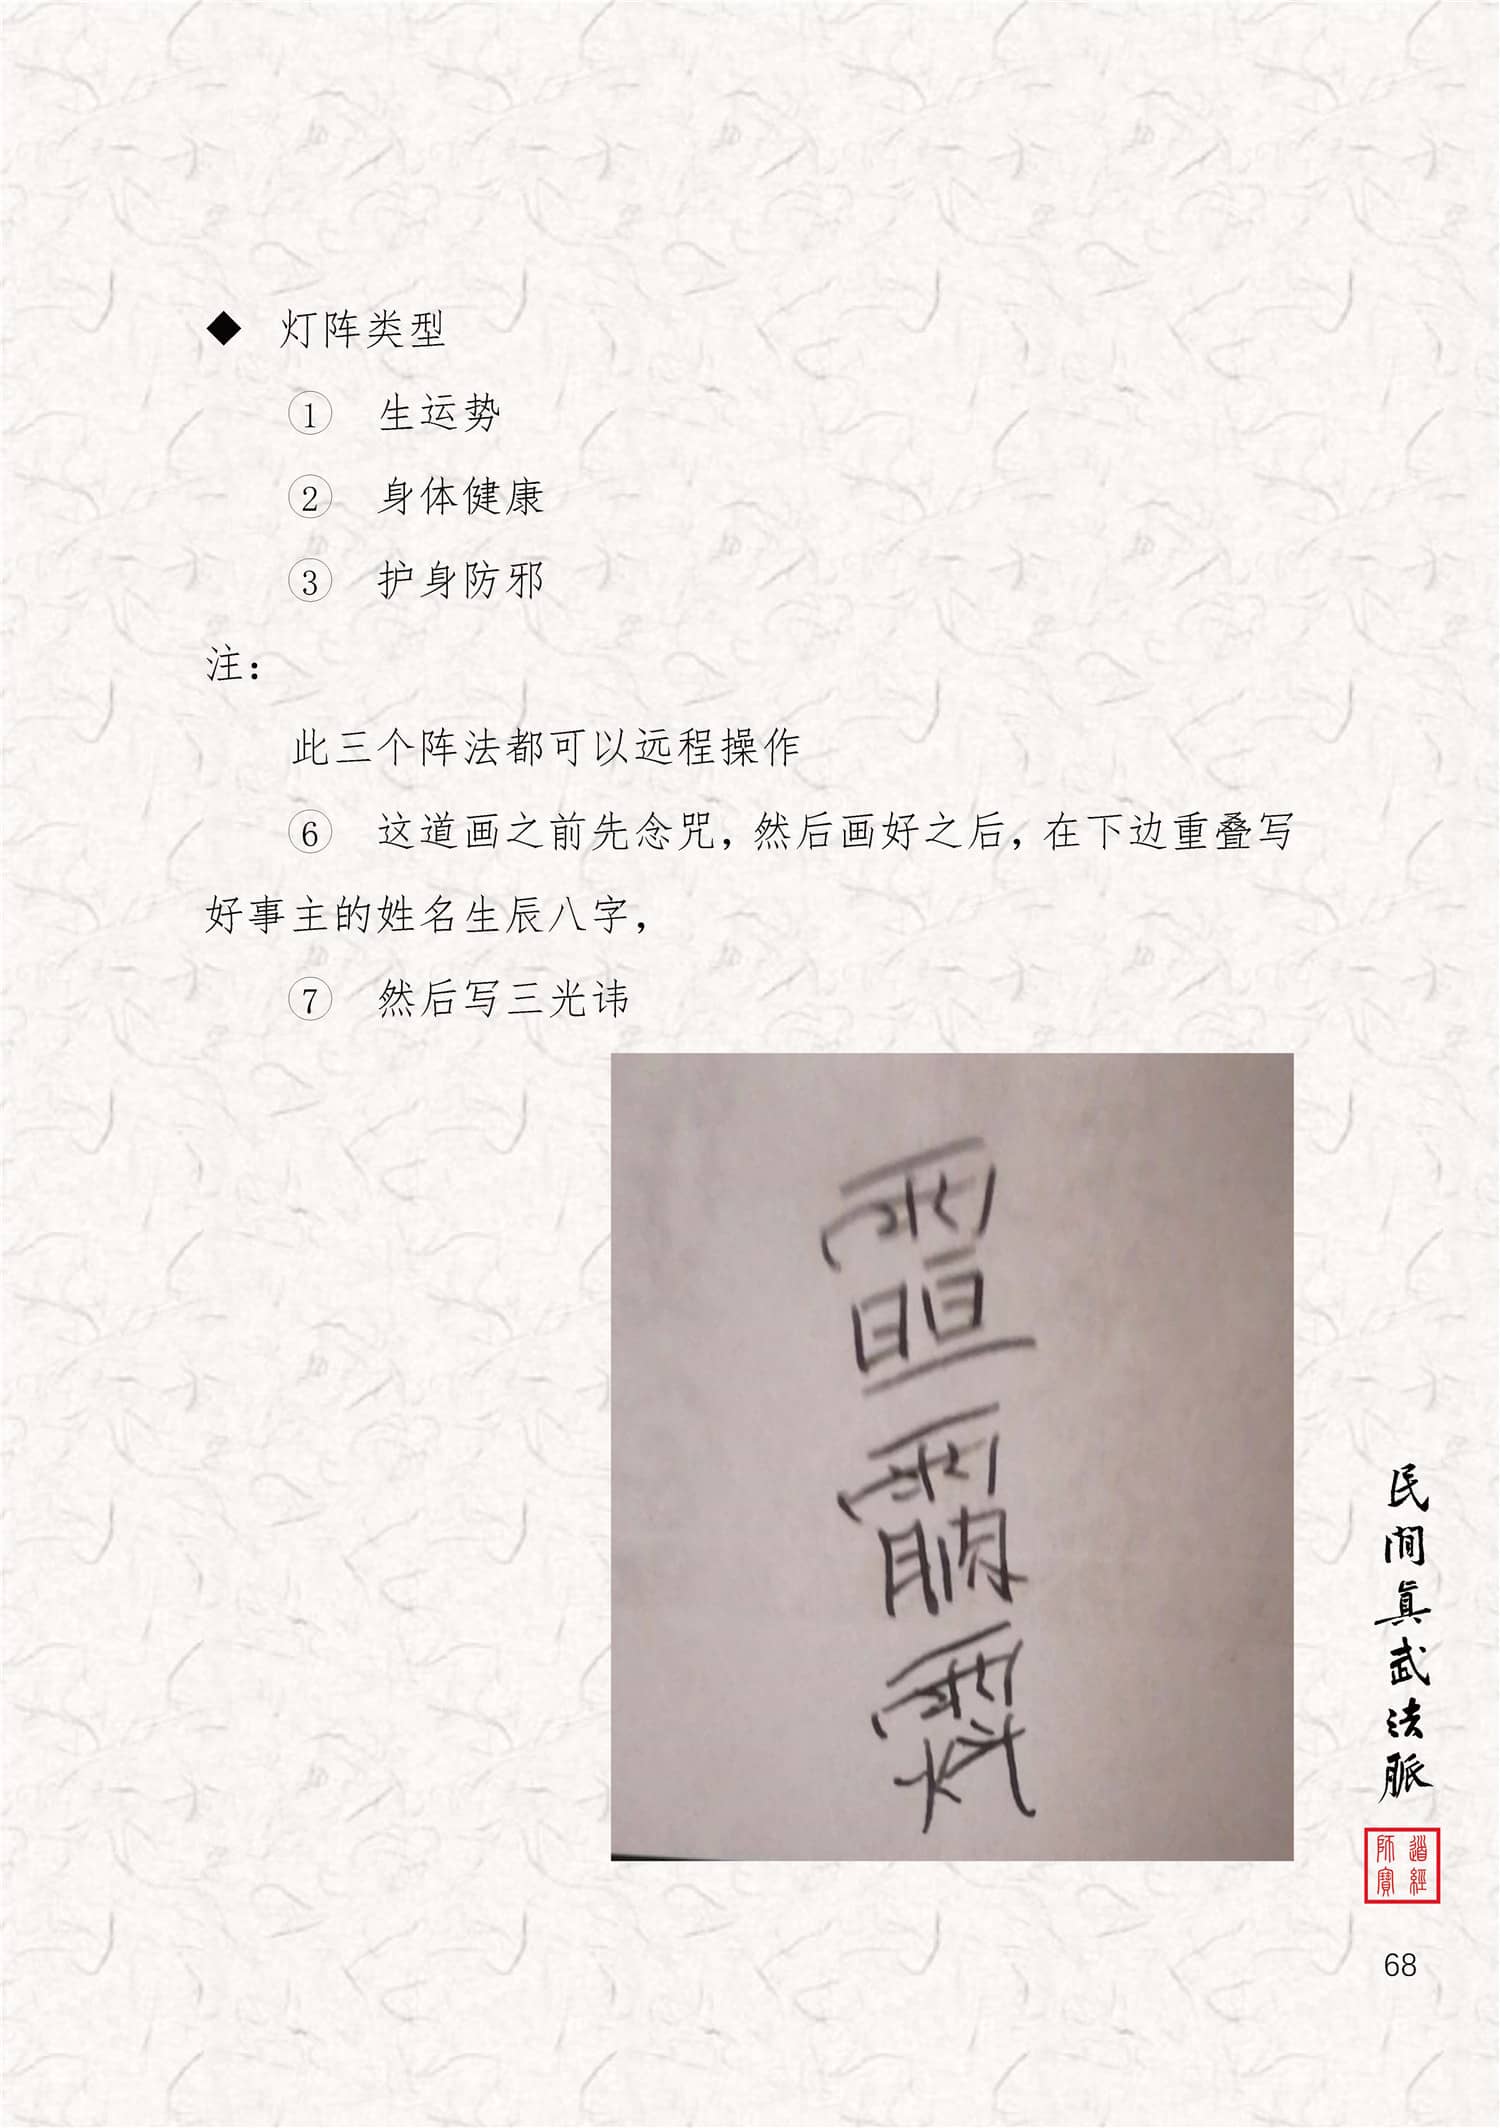 ◆ 灯阵类型
① 生运势
② 身体健康
③ 护身防邪
注：
此三个阵法都可以远程操作
⑥ 这道画之前先念咒，然后画好之后，在下边重叠写
好事主的姓名生辰八字，
⑦ 然后写三光讳
民间真武法脈
道經師寶
68